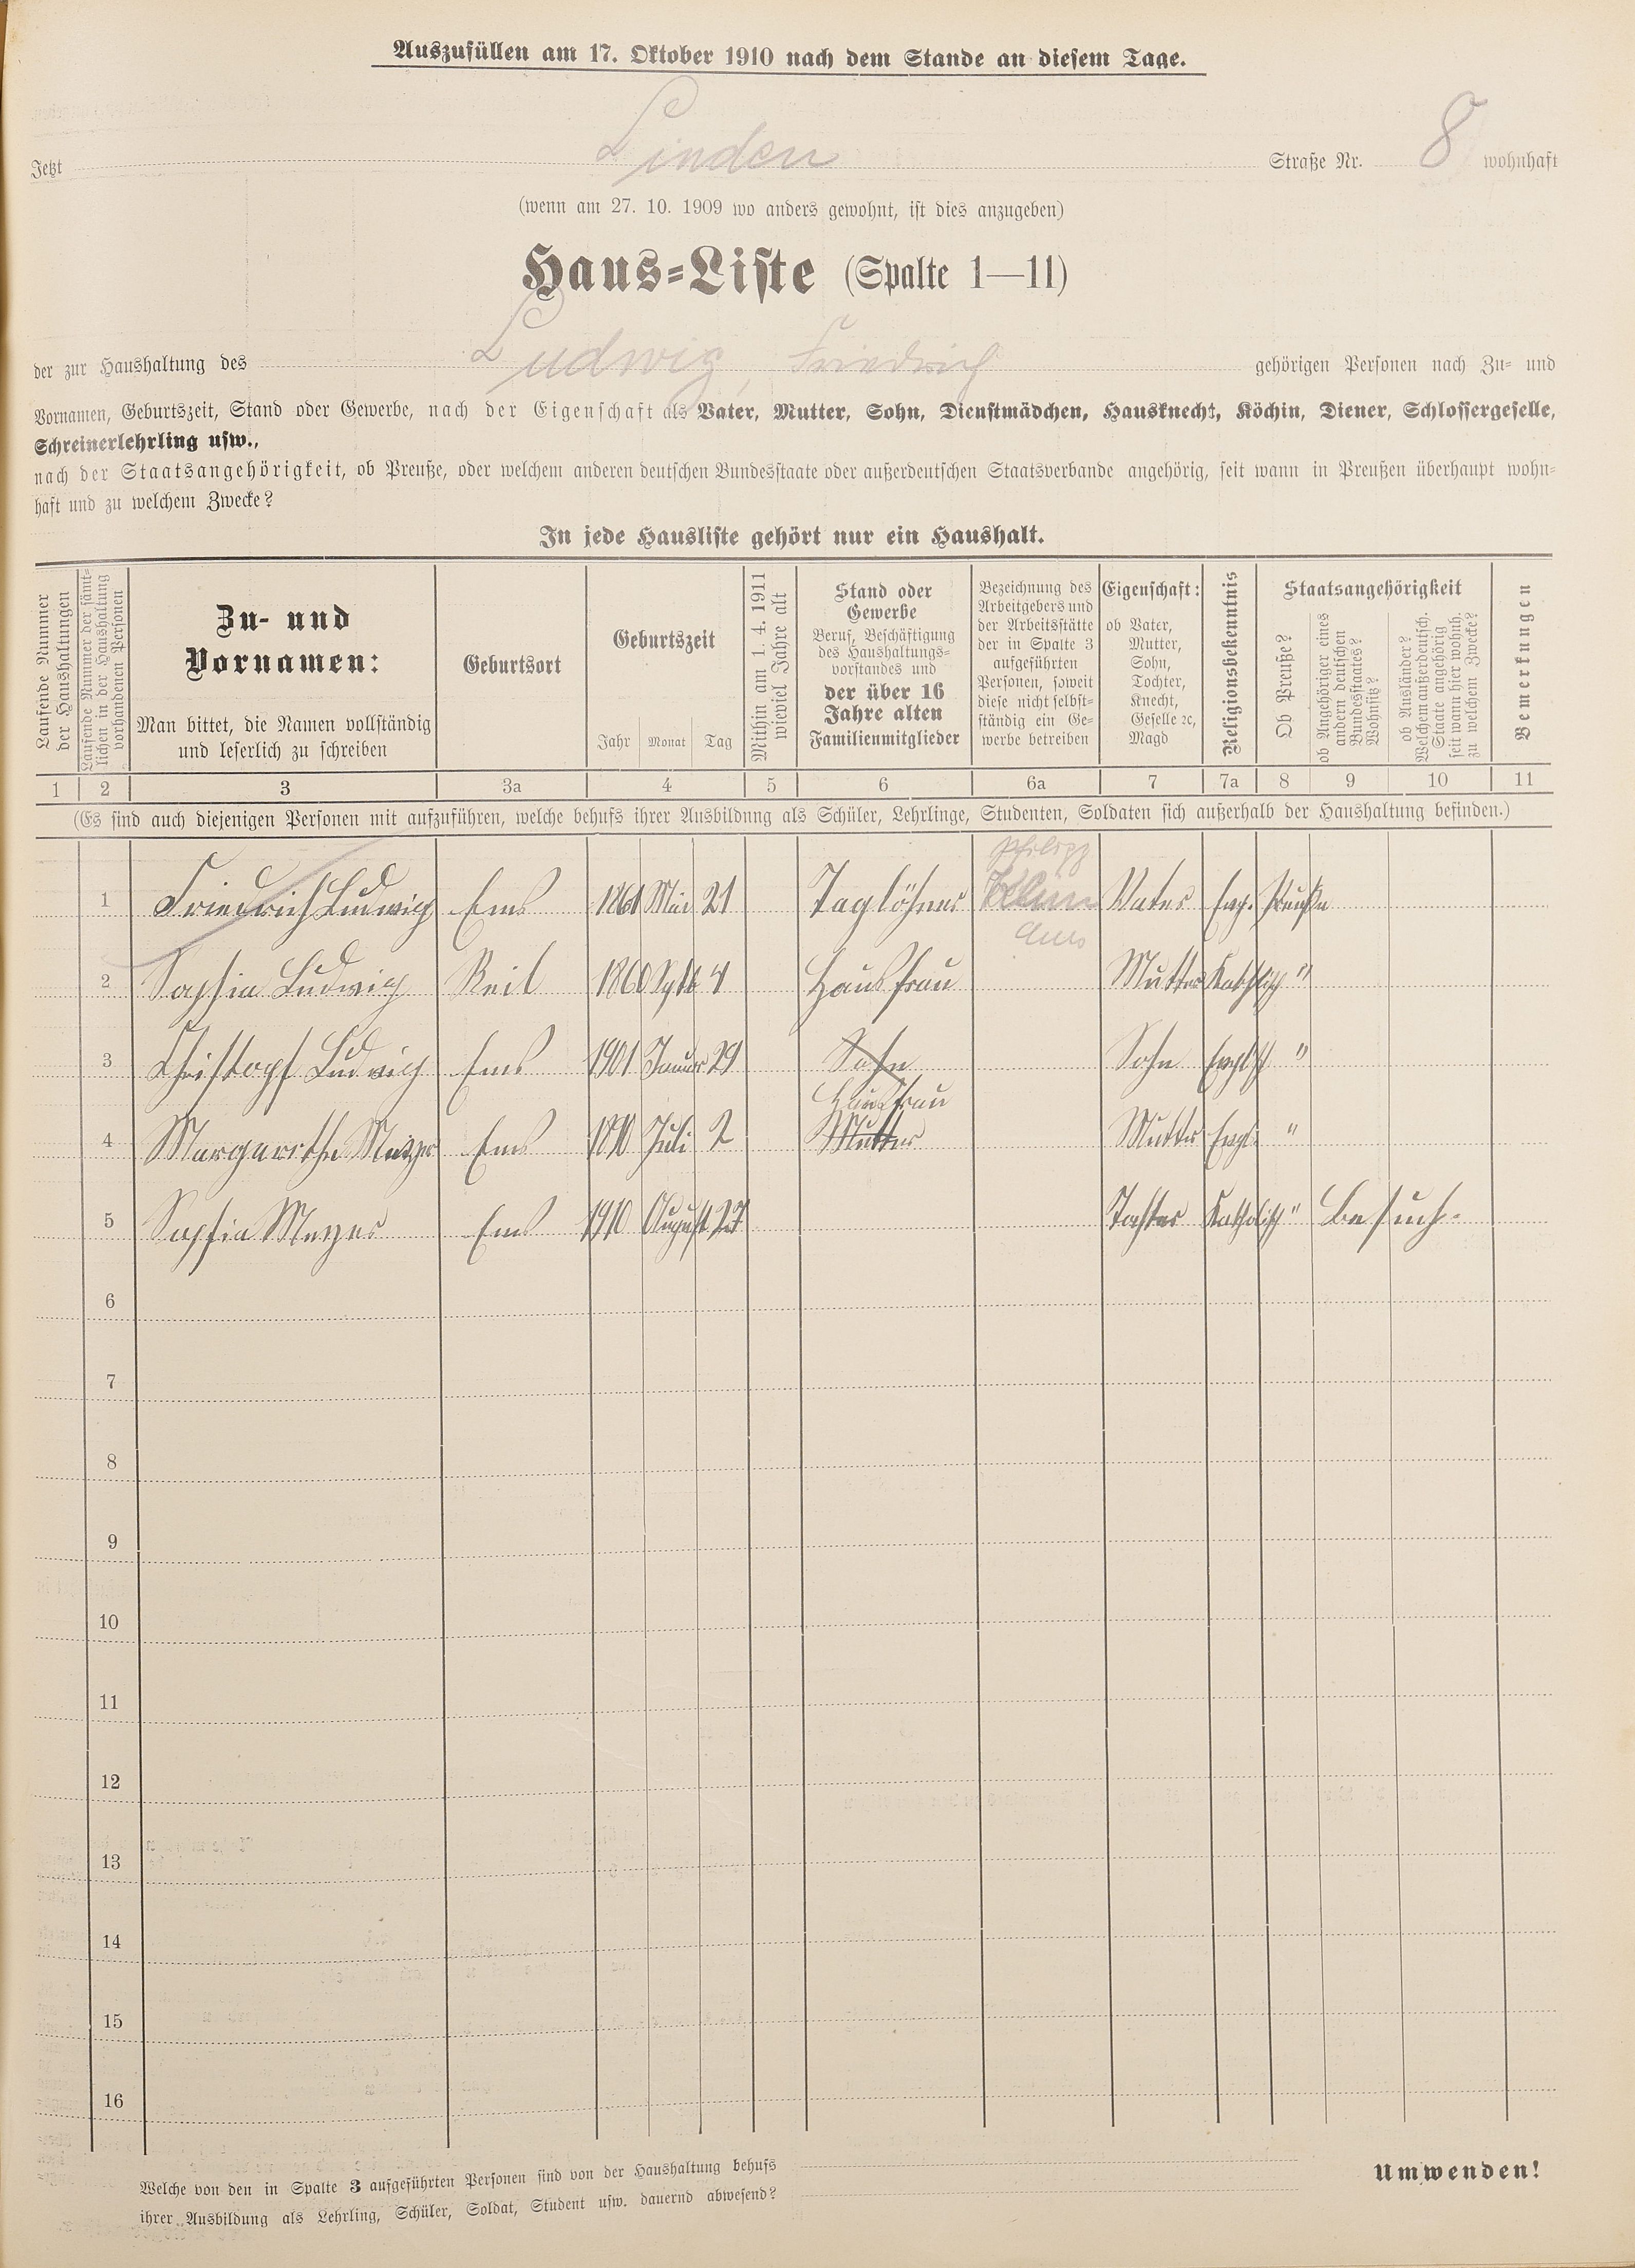 Auszufüllen am 17. Oktober 1910 nach dem Stande an diesem Tage.
Jetzt Linden Straße Nr. 8 wohnhaft
(wenn am 27. 10. 1909 wo anders gewohnt, ist dies anzugeben)
Haus-Liste (Spalte 1—11)
der zur Haushaltung des Ludwig, Friedrich gehörigen Personen nach Zu- und
Vornamen, Geburtszeit, Stand oder Gewerbe, nach der Eigenschaft als Vater, Mutter, Sohn, Dienstmädchen, Hausknecht, Köchin, Diener, Schlossergeselle,
Schreinerlehrling usw.,
nach der Staatsangehörigkeit, ob Preuße, oder welchem anderen deutschen Bundesstaate oder außerdeutschen Staatsverbande angehörig, seit wann in Preußen überhaupt wohn-
haft und zu welchem Zwecke?
In jede Hausliste gehört nur ein Haushalt.
Laufende Nummer
der Haushaltungen
Laufende Nummer der sämt-
lichen in der Haushaltung
vorhandenen Personen
Zu- und
Vornamen:
Man bittet, die Namen vollständig
und leserlich zu schreiben
Geburtsort
Geburtszeit
Jahr Monat Tag
Mithin am 1. 4. 1911
wieviel Jahre alt
Stand oder
Gewerbe
Beruf, Beschäftigung
des Haushaltungs-
vorstandes und
der über 16
Jahre alten
Familienmitglieder
Bezeichnung des
Arbeitgebers und
der Arbeitsstätte
der in Spalte 3
aufgeführten
Personen, soweit
diese nicht selbst-
ständig ein Ge-
werbe betreiben
Eigenschaft:
ob Vater,
Mutter,
Sohn,
Tochter,
Knecht,
Geselle ꝛc,
Magd
Religionsbekenntnis
Staatsangehörigkeit
Ob Preuße?
ob Angehöriger eines
andern deutschen
Bundesstaates?
Wohnsitz?
ob Ausländer?
Welchem außerdeutsch.
Staate angehörig
seit wann hier wohnh.
zu welchem Zwecke?
Bemerkungen
1 2 3 3a 4 5 6 6a 7 7a 8 9 10 11
(Es sind auch diejenigen Personen mit aufzuführen, welche behufs ihrer Ausbildung als Schüler, Lehrlinge, Studenten, Soldaten sich außerhalb der Haushaltung befinden.)
Philipp
1 Friedrich Ludwig Ems 1861 Mai 21 Taglöhner Vater Evg. Preuße
Ems
2 Sophia Ludwig Reil 1860 Septb 4 Hausfrau Mutter Katholisch "
3 Christoph Ludwig Ems 1901 Januar 29 Sohn Sohn "
Hausfrau
4 Margaretha Meyer Ems Juli 2 Mutter Mutter Evgl. "
5 Sophia Meyer Ems 1910 August 27 Tochter Katholisch " Besuch.
6
7
8
9
10
11
12
13
14
15
16
Welche von den in Spalte 3 aufgeführten Personen sind von der Haushaltung behufs
ihrer Ausbildung als Lehrling, Schüler, Soldat, Student usw. dauernd abwesend?
Umwenden!